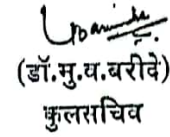 (डॉ.मु.व.बरीदे)
कुलसचिव